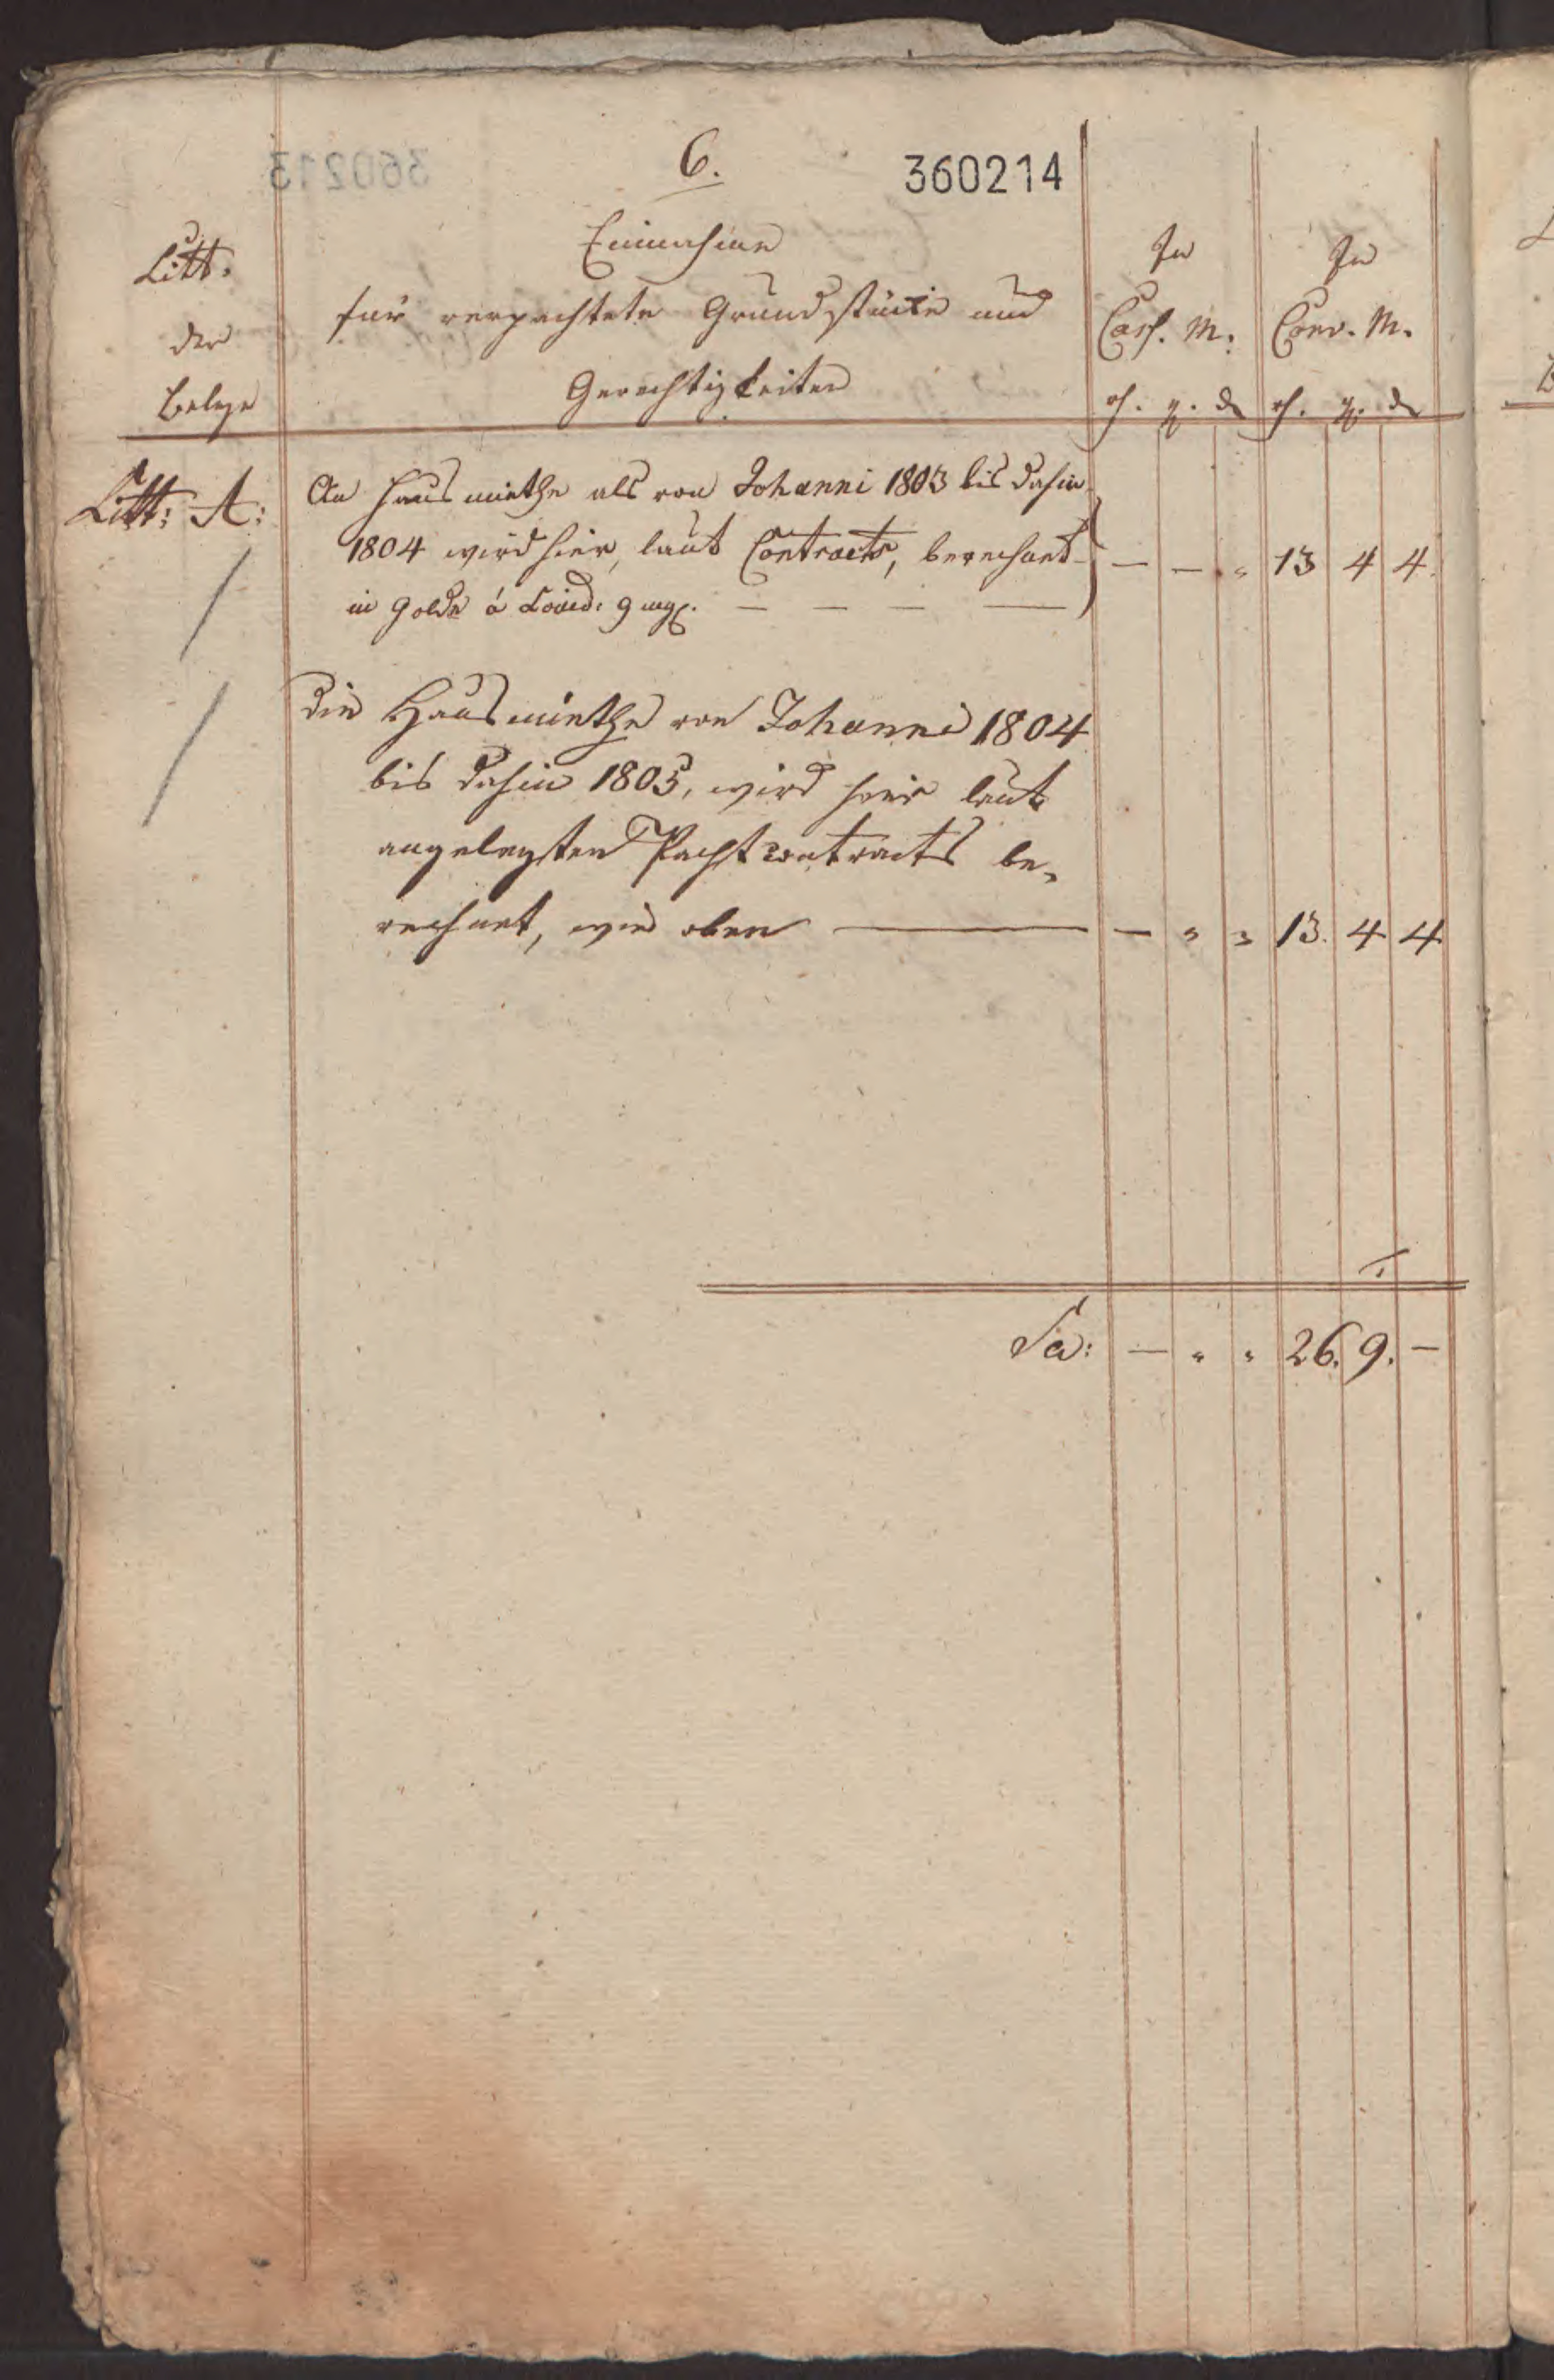 6.
360214
Litt.
der
Belege
Einnahme
für verpachtete Grundstücke und
Gerechtigkeiten
In
Cass. M:
In
Conv. M.
rh. g. d rh. g. d
Litt: A:
An Hausmiethe als von Johanni 1803 bis dahin
1804 wird hier, laut Contracts, berechnet
in Golde á Louisd: 9 mg. — — — — — — " 13 4 4.
die Hausmiethe von Johanni 1804
bis dahin 1805, wird hier laut
angelegten Pachtcontracts be-
rechnet, wie oben — — " " 13. 4 4
Sa: — " " 26. 9. —